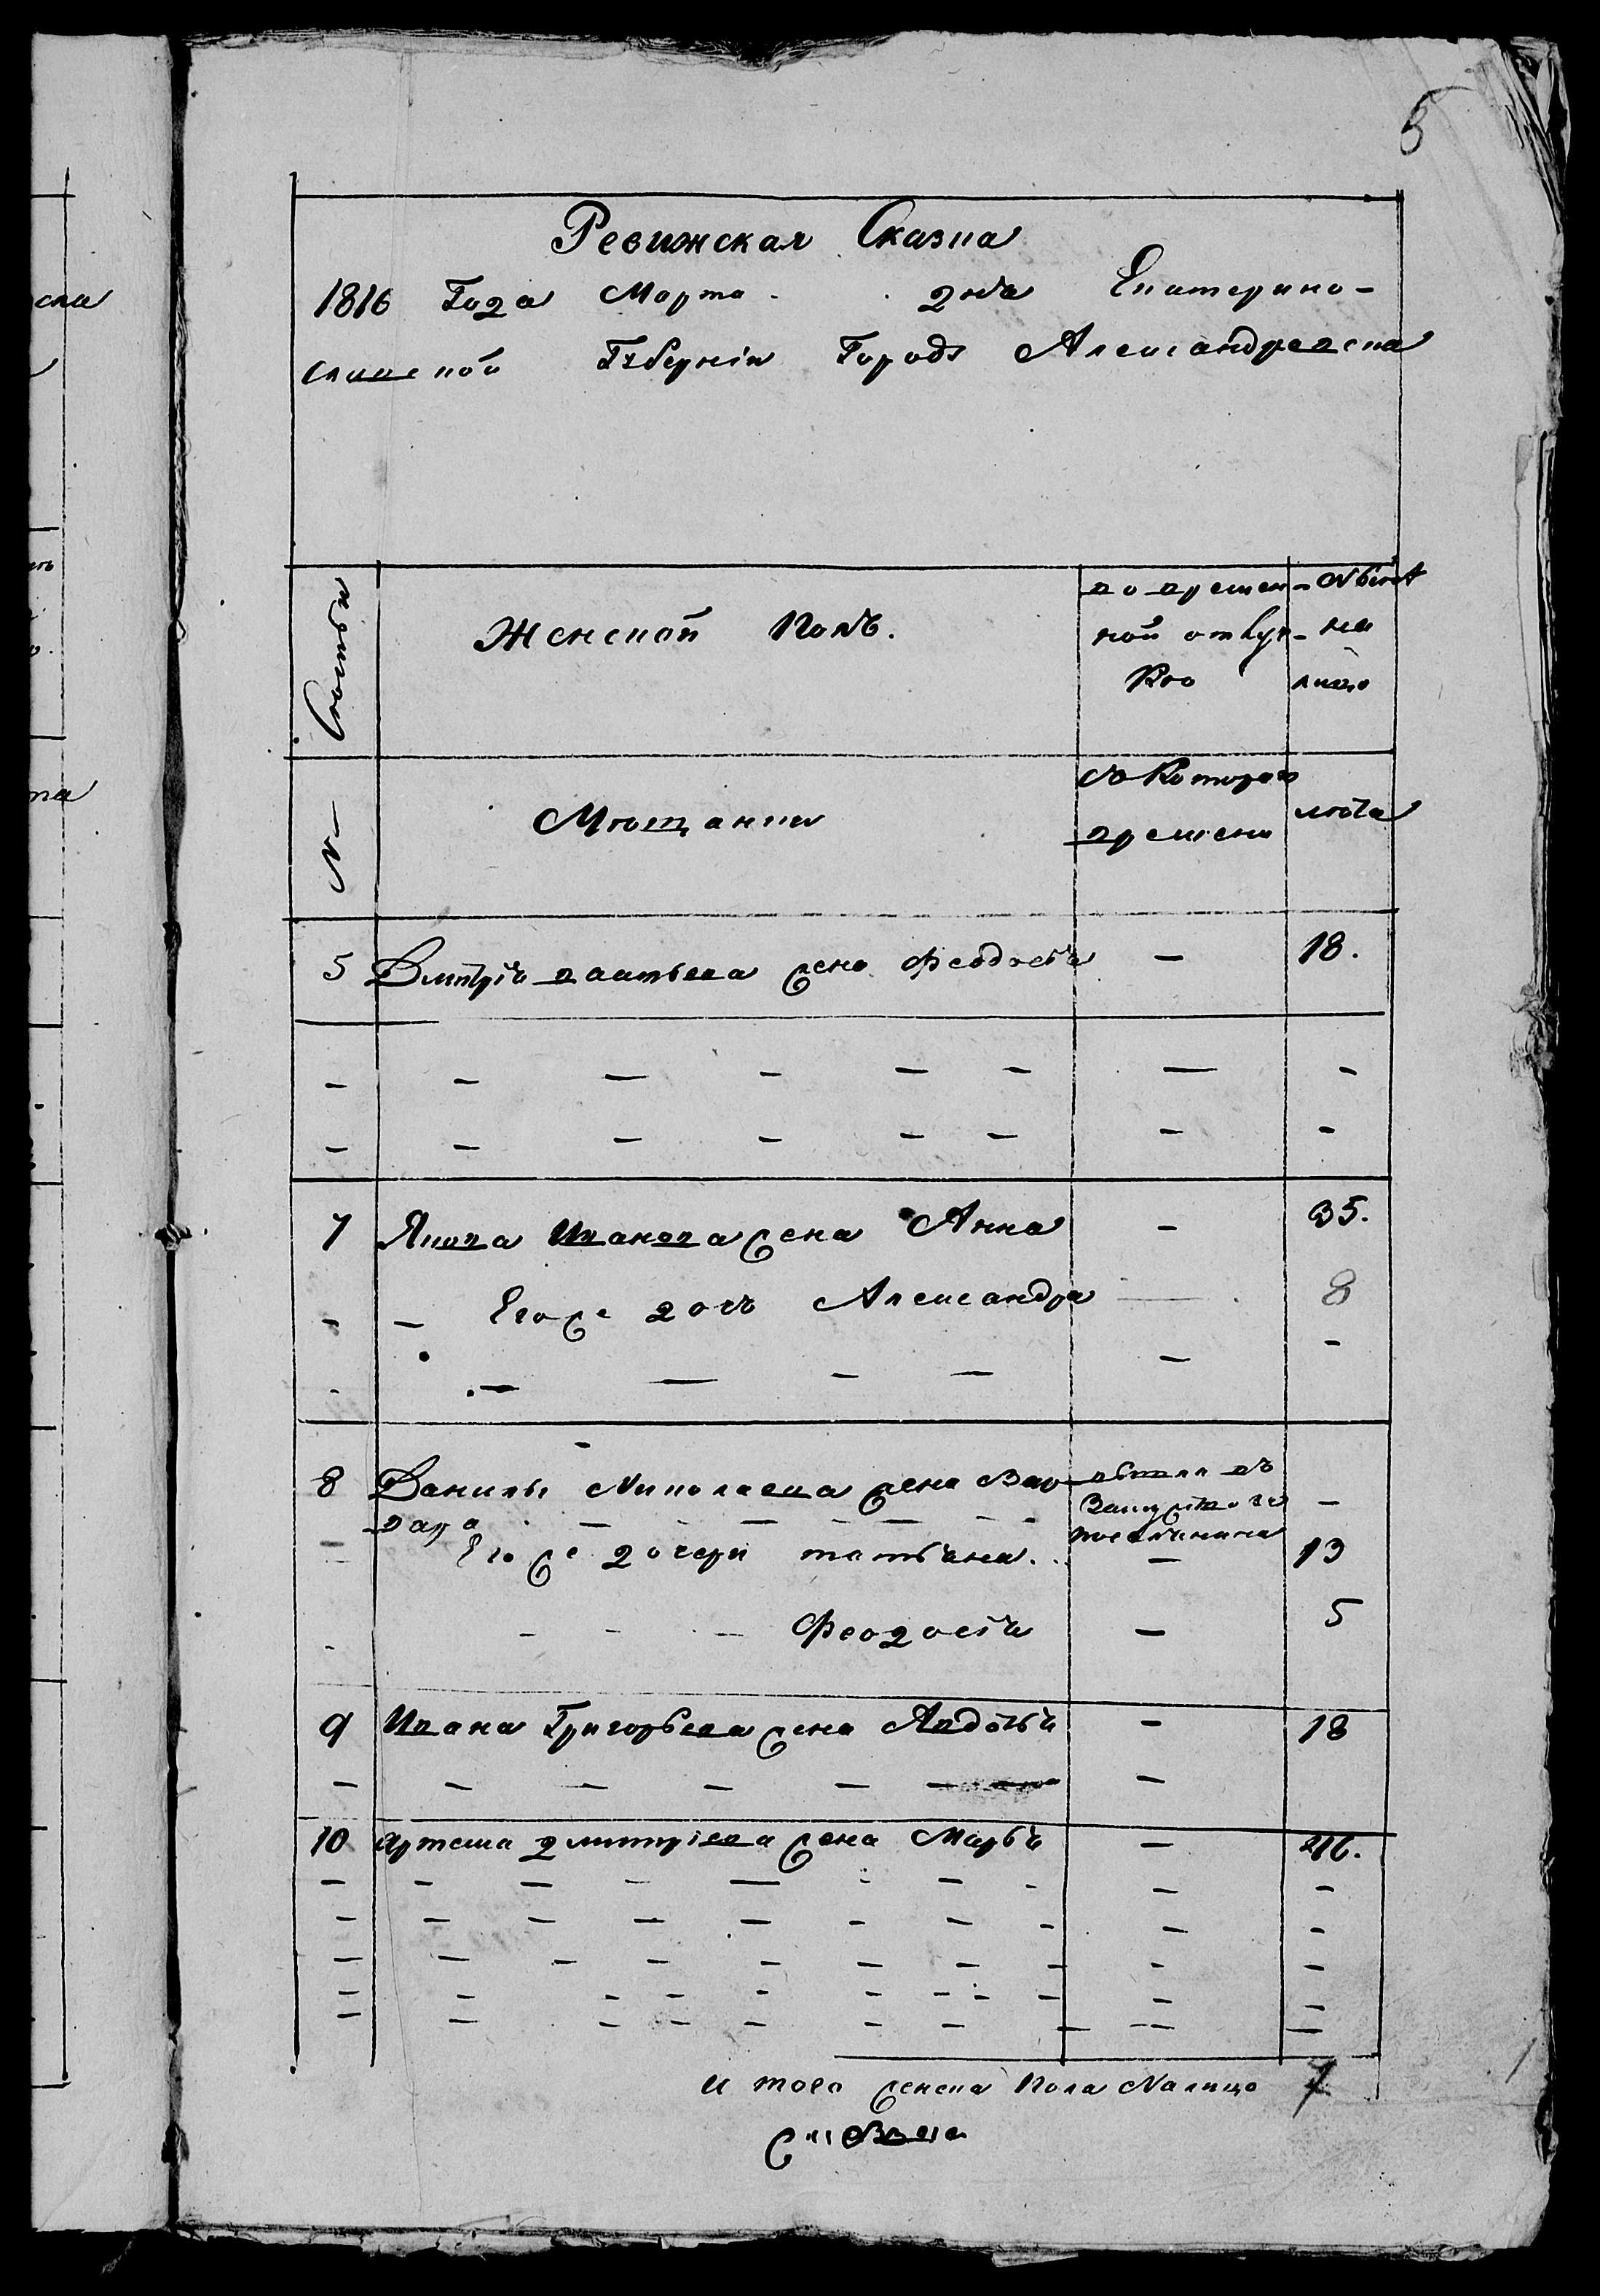 5
Ревижская Сказка
1816 Года Марта дня Екатерино-
славской Губерніи Города Александровска
Семьи
Женской Полъ.
во времен-
ной отлуч-
ке
Ныне
на
лицо
№
Мещанки
С котораго
времени
лета
5 Дмитрія жена Феодосія — 18.
— — — — — — — —
— — — — — — — —
7 Якова Иванова жена Анна — 35.
- — Его же дочь Александра — 8
- — — — — — -
8 Данилы Николаева жена Вар-
вара — — — — —
въ
замужство за
поселянина
—
Его же дочери татьяна. — 13
- - - — Феодосія — 5
9 Ивана Григорьева жена Авдотья — 18
— — — — — — — —
10 Артема дмитріева жена Марья —
— — — — — — — — — —
— — — — — — — — — —
— — — — — — — — — —
— — — — — — — — — —
— — — — — — — — — —
И того женска Пола Налицо 7